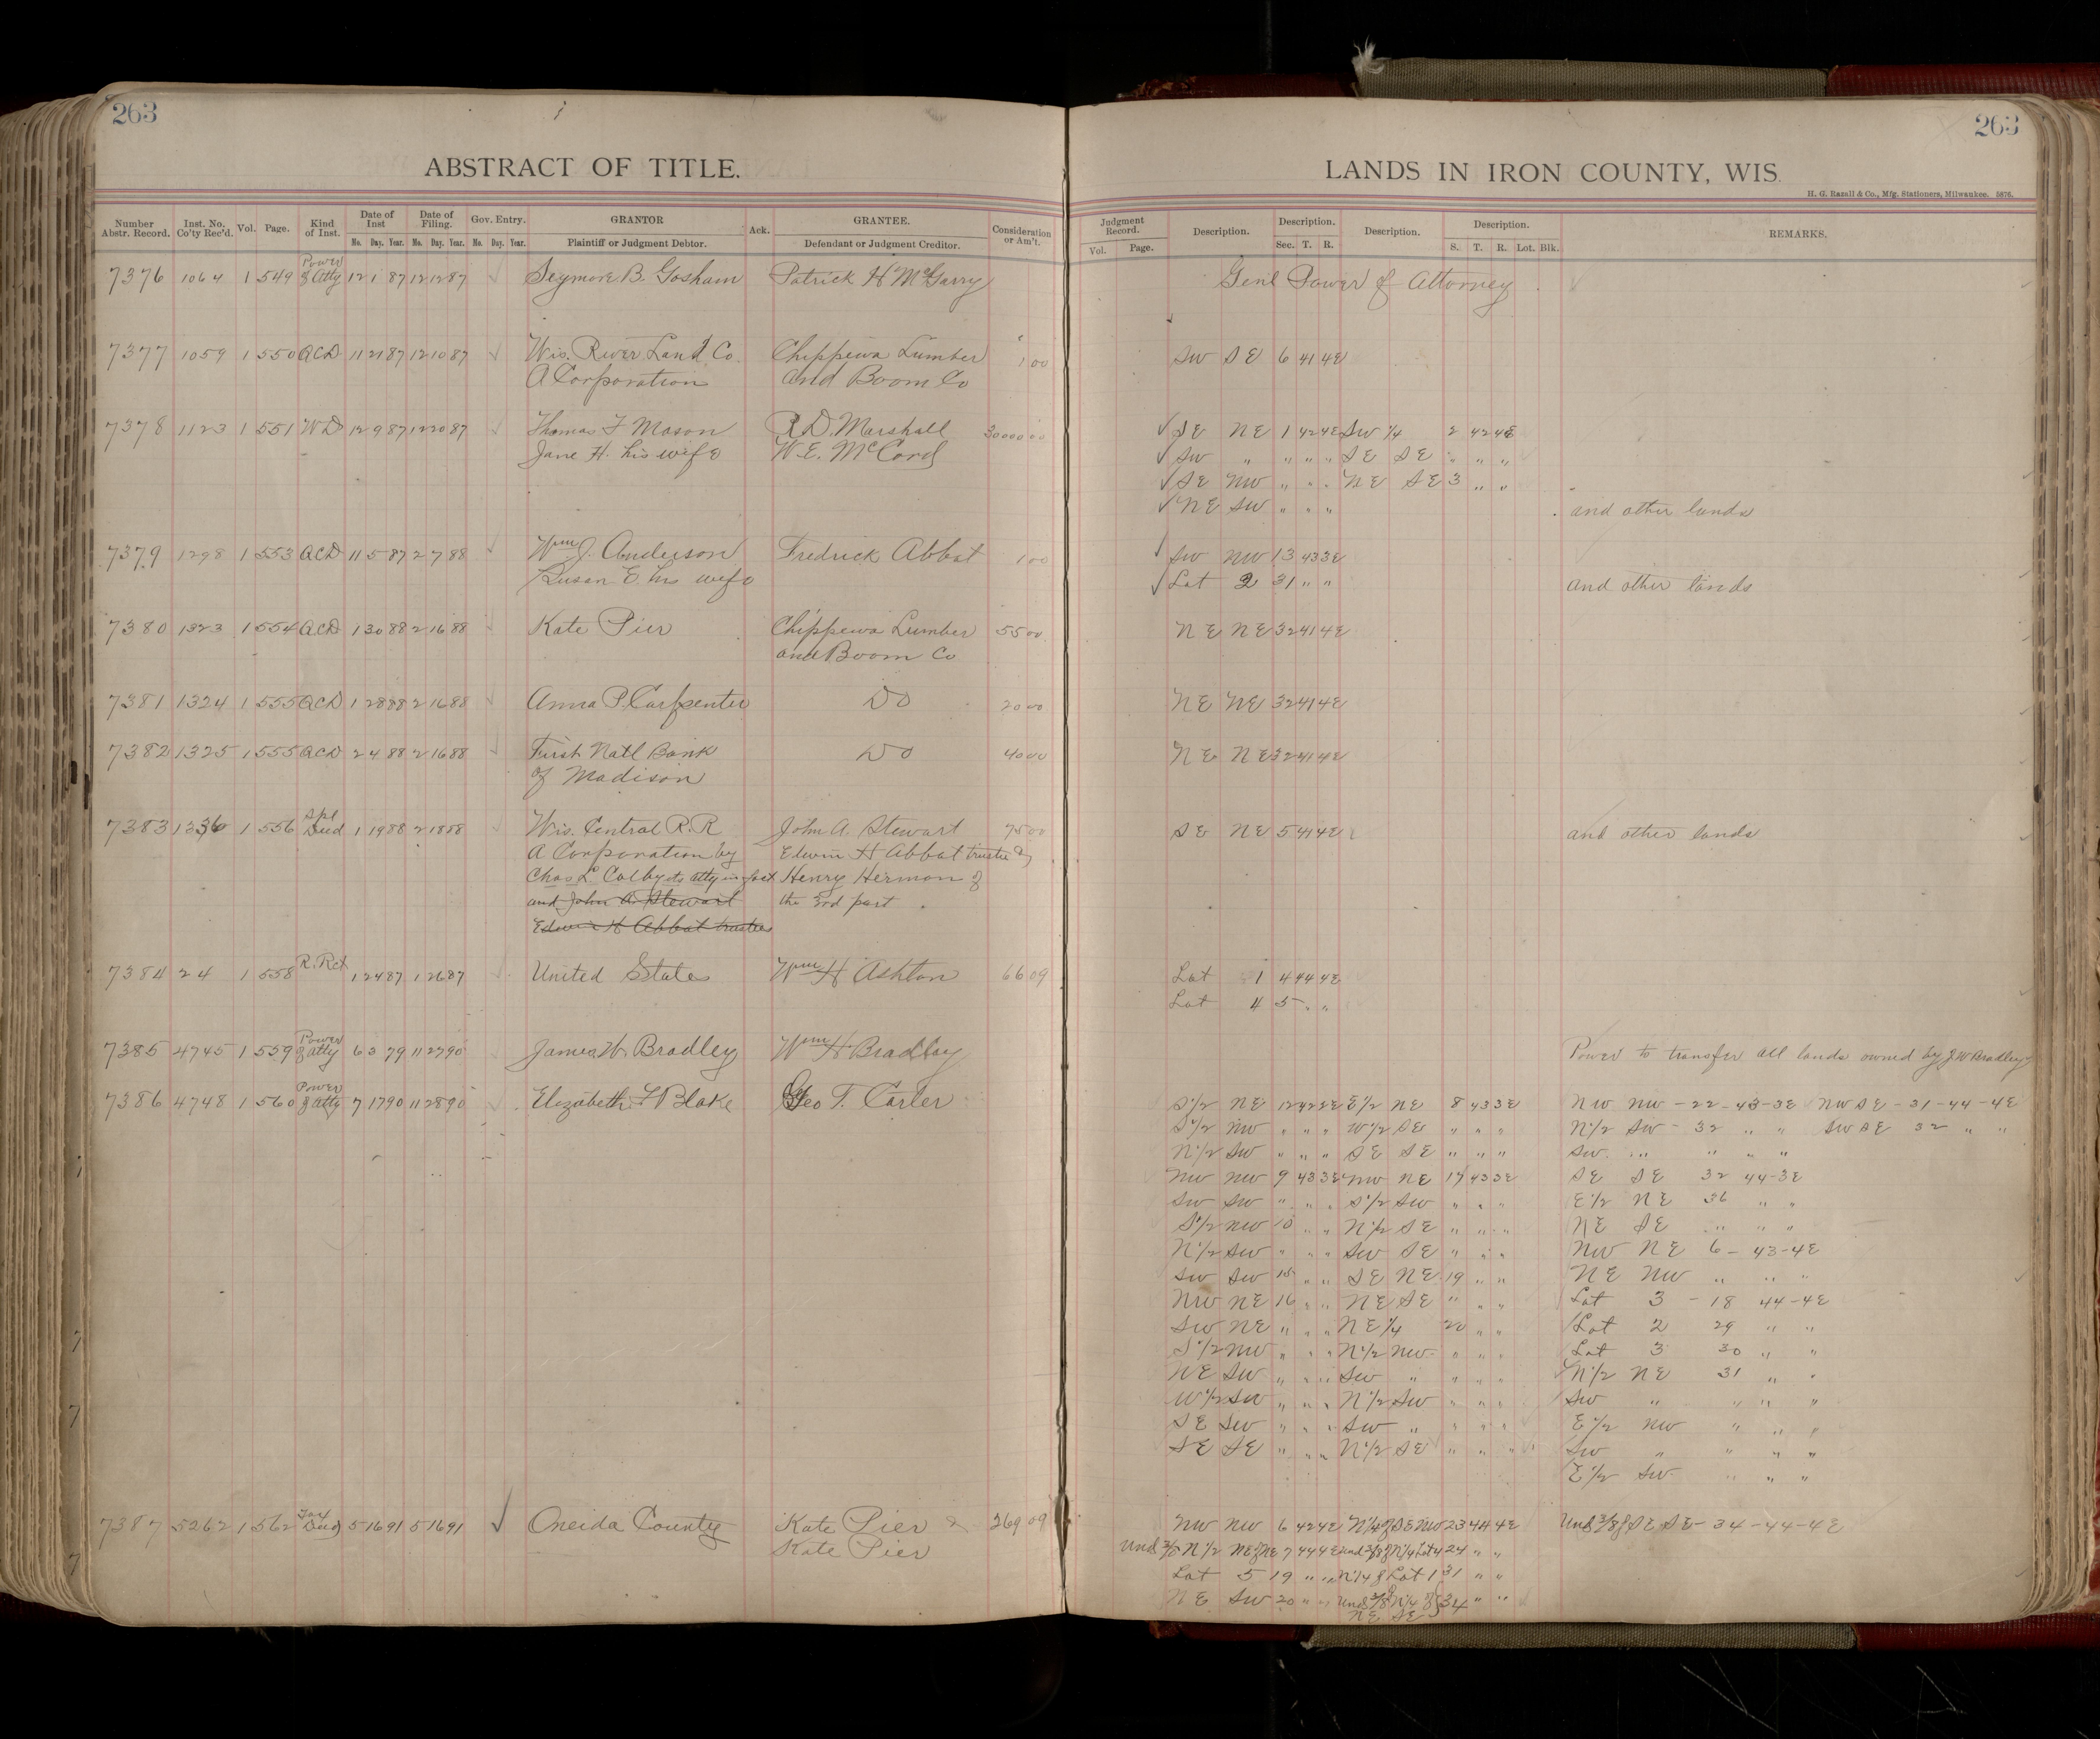 263
263
ABSTRACT OF TITLE.
LANDS IN IRON COUNTY, WIS.
H. G. Razall & Co., Mfg. Stationers, Milwaukee. 5876.
Number Abstr. Record. Inst. No. Co'ty Rec'd. Vol. Page. Kind of Inst. Date of Inst Mo. Day. Year. Date of Filing. Mo. Day. Year. Gov. Entry. Mo. Day. Year. GRANTOR Plaintiff or Judgment Debtor. Ack. GRANTEE. Defendant or Judgment Creditor. Consideration or Am't.
Judgment Record. Vol. Page. Description. Description. Sec. T. R. Description. Description. S. T. R. Lot. Blk. REMARKS.
7376 1064 1 549 Power of Atty 12 1 87 12 12 87 Seymore B. Gosham Patrick H McGarry Genl Power of Attorney
7377 1059 1 550 QCD 11 21 87 12 10 87 Wis. River Land Co. Chippewa Lumber 1 00 SW SE 6 41 4E
A Corporation and Boom Co
7378 1123 1 551 WD 12 9 87 12 20 87 Thomas F Mason R D. Marshall 30000 00 SE NE 1 42 4E SW 1/4 2 42 4E
Jane H. his wife W. E. McCord SW " " " " SE SE " " "
SE NW " " " NE SE 3 " "
NE SW " " " and other lands
7379 1298 1 553 QCD 11 5 87 2 7 88 Wm J. Anderson Fredrick Abbot 1 00 SW NW 13 43 3E
Susan E. his wife Lot 2 31 " " and other lands
7380 1323 1 554 QCD 1 30 88 2 16 88 Kate Pier Chippewa Lumber 55 00 NE NE 32 41 4E
and Boom Co
7381 1324 1 555 QCD 1 28 88 2 16 88 Anna P. Carpenter Do 20 00 NE NE 32 41 4E
7382 1325 1 555 QCD 2 4 88 2 16 88 First Natl Bank Do 40 00 NE NE 32 41 4E
of Madison
7383 1336 1 556 Spl Deed 1 19 88 2 18 88 Wis. Central R.R John A. Stewart 75 00 SE NE 5 41 4E and other lands
A Corporation by Edwin H Abbot trustee &
Chas L. Colby its atty in fact Henry Hermon of
and John A. Stewart the 3rd part
Edwin H Abbot trustees
7384 24 1 558 R. Rct 1 24 87 1 26 87 United States Wm H Ashton 66 09 Lot 1 4 44 4E
Lot 4 5 " "
7385 4745 1 559 Power of atty 6 3 79 11 27 90 James W. Bradley Wm H. Bradley Power to transfer all lands owned by J W Bradley
7386 4748 1 560 Power of atty 7 17 90 11 28 90 Elizabeth F Blake Geo T. Carter S1/2 NE 12 42 2E E1/2 NE 8 43 3E NW NW - 22 - 43 - 3E NW SE - 31 - 44 - 4E
S1/2 NW " " " W1/2 SE " " " N1/2 SW - 32 " " SW SE 32 " "
N1/2 SW " " " SE SE " " " SW " " " "
NW NW 9 43 3E NW NE 17 43 3E SE SE 32 44-3E
SW SW " " " S1/2 SW " " " E1/2 NE 36 " "
S1/2 NW 10 " " N1/2 SE " " " NE SE " " "
N1/2 SW " " " SW SE " " " NW NE 6 - 43-4E
SW SW 15 " " SE NE 19 " " NE NW " " "
NW NE 16 " " NE SE " " " Lot 3 - 18 44-4E
SW NE " " " NE 1/4 20 " " Lot 2 29 " "
S1/2 NW " " " N1/2 NW " " " Lot 3 30 " "
NE SW " " " SW " " " " N1/2 NE 31 " "
W1/2 SW " " " N1/2 SW " " " SW " " " "
SE SW " " " SW " " " " E1/2 NW " " "
SE SE " " " N1/2 SE " " " SW " " " "
E1/2 SW " " "
7387 5262 1 562 Tax Deed 5 16 91 5 16 91 Oneida County Kate Pier & 269 09 NW NW 6 42 4E N1/4 of SE NW 23 44 4E Und 3/8 of SE SE - 34 - 44 - 4E
Kate Pier Und N1/2 NE of NE 7 44 4E und 3/8 of N1/4 Lot 4 24 " "
Lot 5 19 " " N1/4 of Lot 1 31 " "
NE SW 20 " " Und 3/8 of N1/4 of 34 " "
NE SE